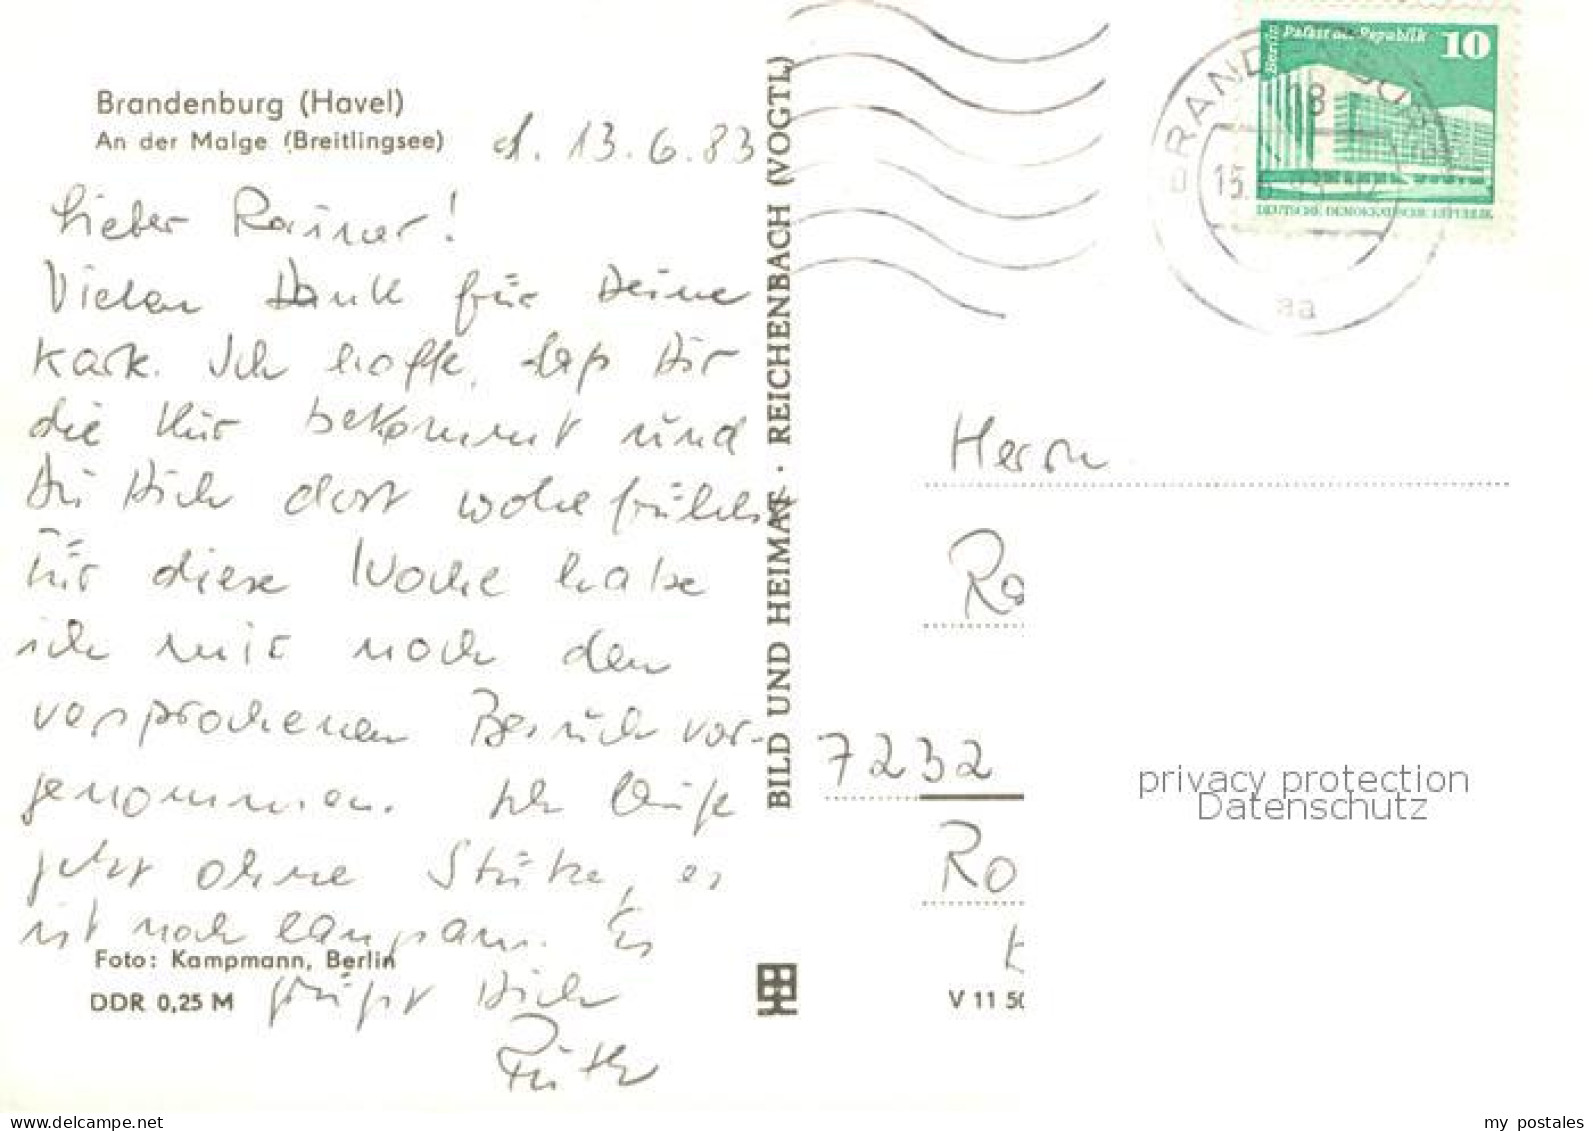 Brandenburg (Havel)
An der Malge (Breitlingsee)
d. 13.6.83
Lieber Rainer!
Vielen Dank für Deine
Karte. Ich hoffe, daß Dir
die Kur bekommt und
Du Dich dort wohl fühlst.
Für diese Woche habe
ich mir noch den
versprochenen Besuch vor-
genommen. Ich laufe
jetzt ohne Stütze, es
ist noch langsam. Es
grüßt Dich
Ruth
Foto: Kampmann, Berlin
DDR 0,25 M
BILD UND HEIMAT · REICHENBACH (VOGTL)
V 11 50
Berlin Palast der Republik 10
DEUTSCHE DEMOKRATISCHE REPUBLIK
BRANDENBURG
18
15.6.
aa
Herrn
Ra
7232
Ro
privacy protection
Datenschutz
www.delcampe.net
my_postales